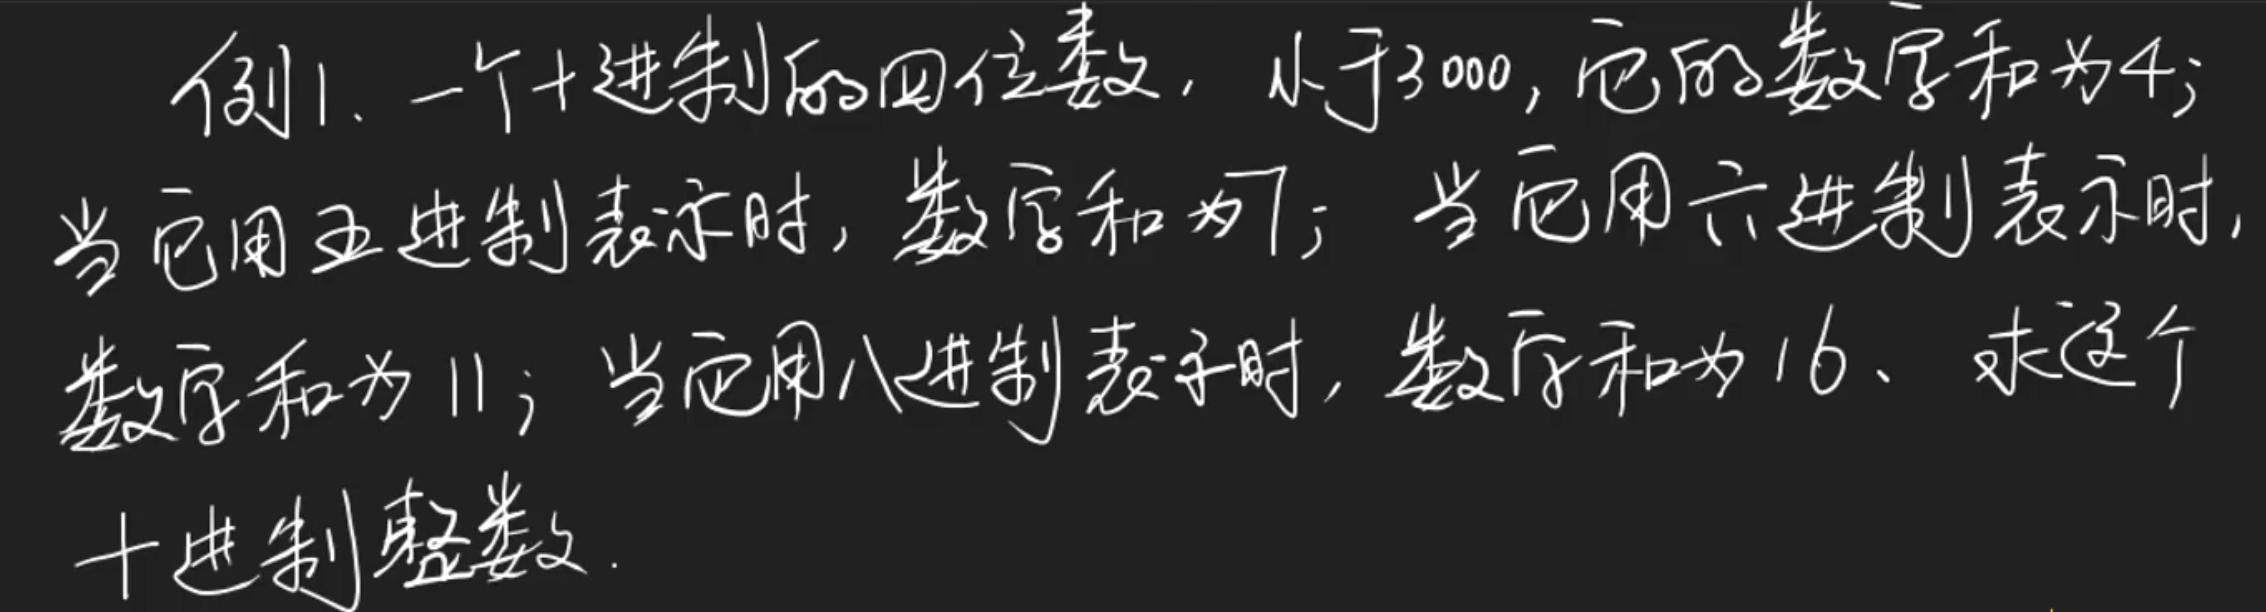 例1. 一个十进制的四位数, 小于3000, 它的数字和为4;
当它用五进制表示时, 数字和为7; 当它用六进制表示时,
数字和为11; 当它用八进制表示时, 数字和为16、求这个
十进制整数.